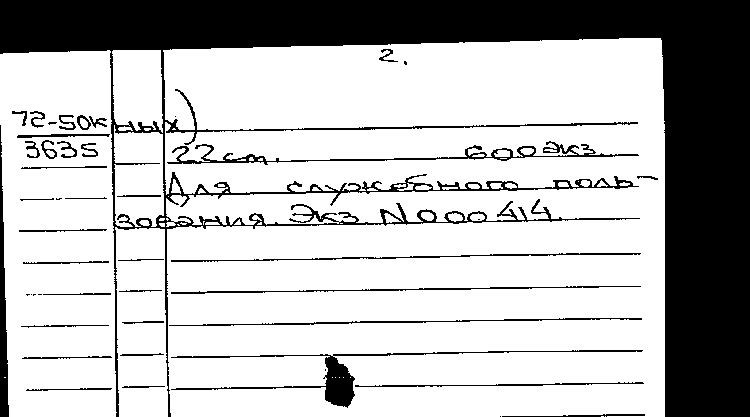 2.
72-50к ных)
3635 22 cm. 600 экз.
Для служебного поль-
зования. Экз N000414.